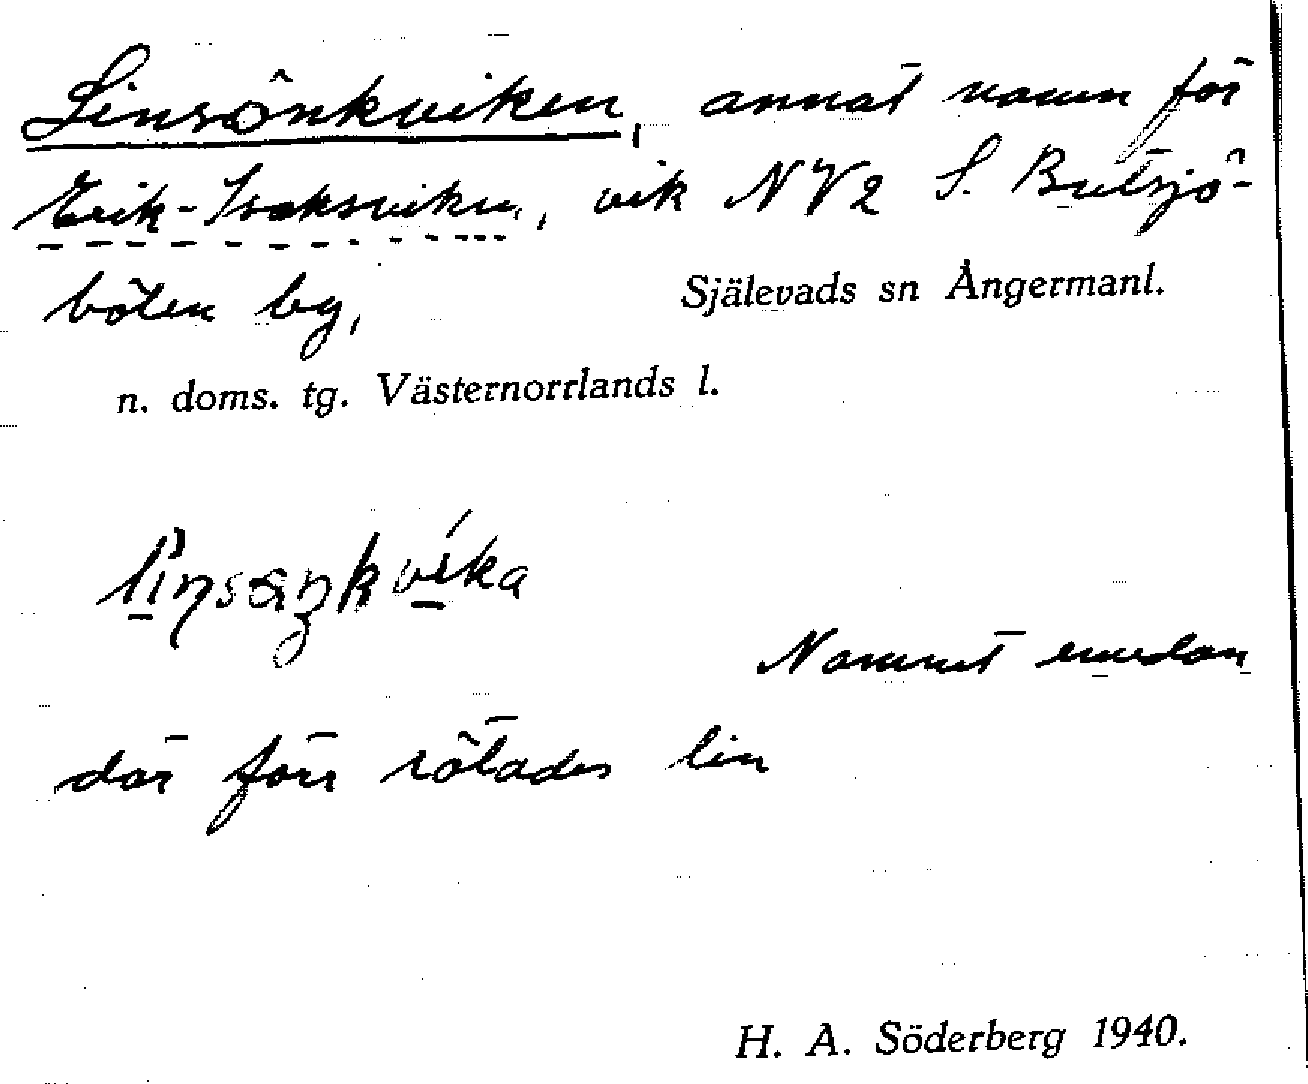 Linsönkviken, annat namn för
Erik-Isaksviken, vik NV2 S. Butsjö-
böten by, Själevads sn Ångermanl.
n. doms. tg. Västernorrlands l.
Namnet emedan
där förr rötades lin
H. A. Söderberg 1940.